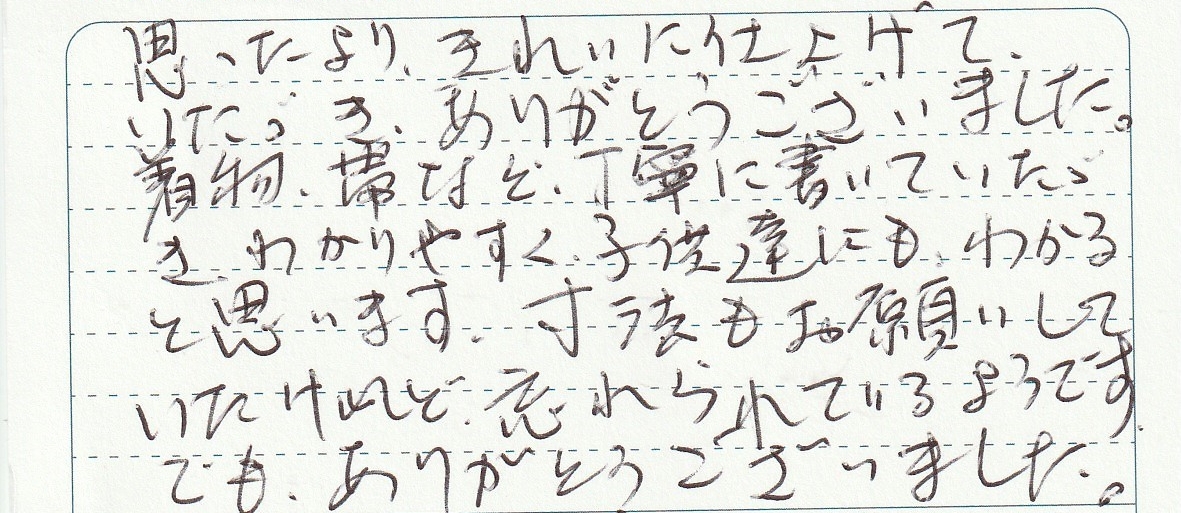 思ったより、きれいに仕上げて、
いただき、ありがとうございました。
着物、帯など、丁寧に書いていただ
き、わかりやすく、子供達にも、わかる
と思います。寸法もお願いして
いたけれど、忘れられているようです。
でも、ありがとうございました。